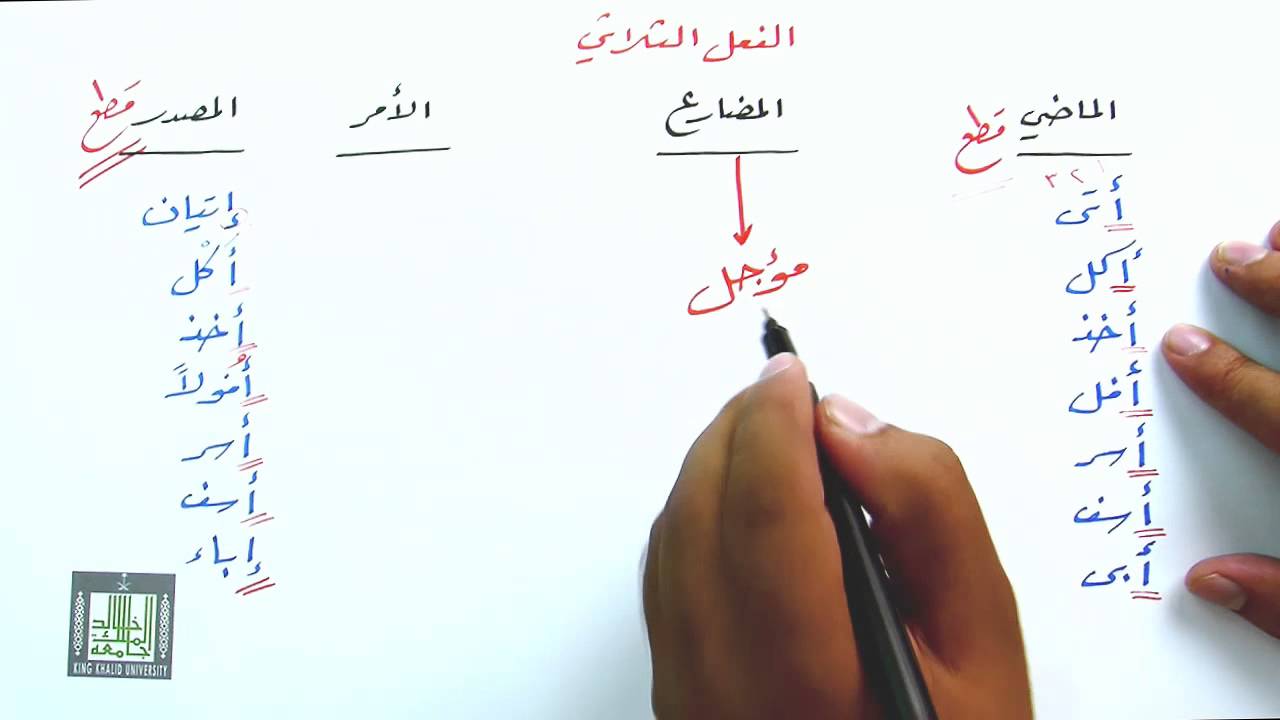 الفعل الثلاثي
الماضي قطع
المضارع
الأمر
المصدر قطع
١ ٢ ٣
أتى
أكل
أخذ
أفل
أسر
أسف
أبى
مؤجل
إتيان
أكْل
أخذ
أُفولاً
أسر
أسف
إباء
جامعة الملك خالد
KING KHALID UNIVERSITY